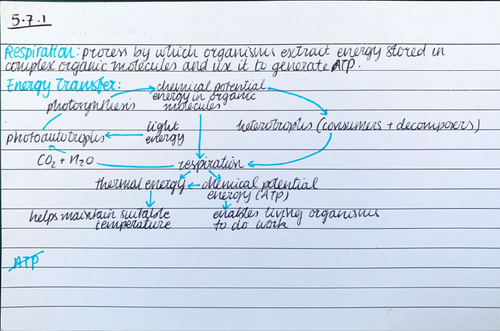 5.7.1
Respiration: process by which organisms extract energy stored in
complex organic molecules and use it to generate ATP.
Energy Transfer:
chemical potential
energy in organic
molecules
photosynthesis
light
energy
heterotrophs (consumers + decomposers)
photoautotrophs
CO₂ + H₂O
respiration
thermal energy
chemical potential
energy (ATP)
helps maintain suitable
temperature
enables living organisms
to do work
ATP